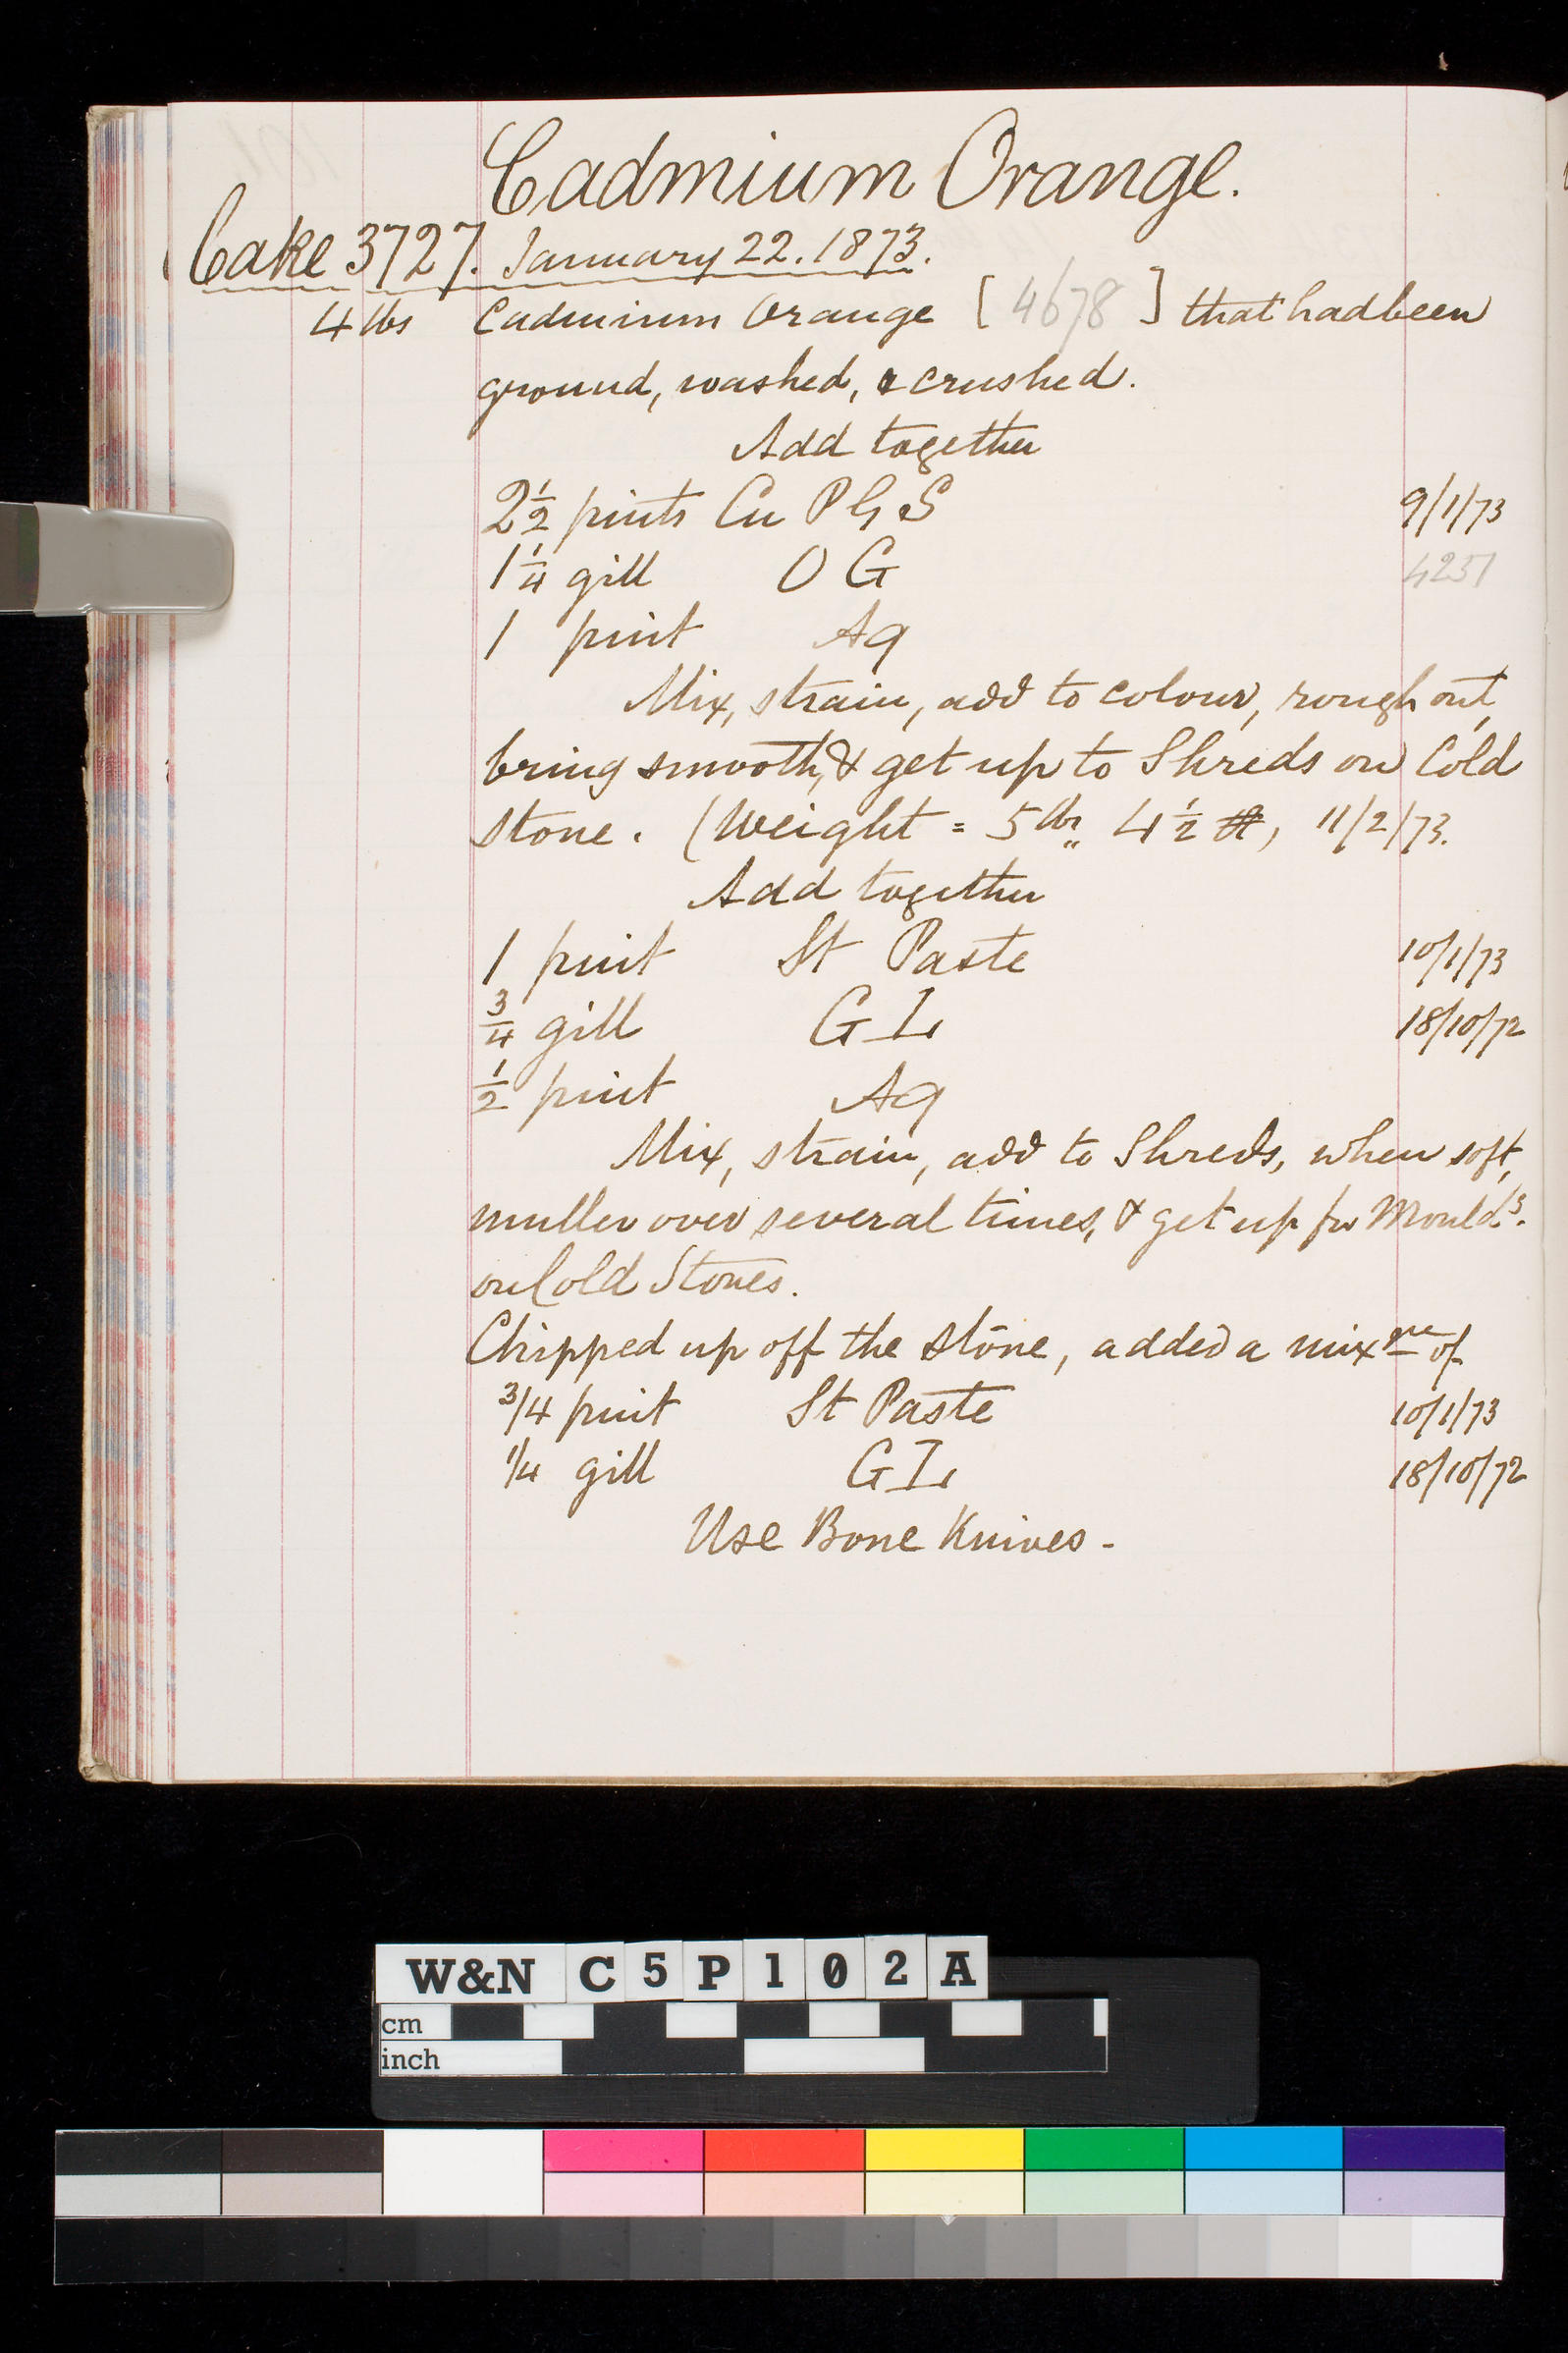 Cadmium Orange.
Cake 3727. January 22. 1873.
4 lbs Cadmium Orange [ 4678 ] that had been
ground, washed, & crushed.
Add together
2½ pints Cu P G S 9/1/73
1¼ gill O G 4251
1 pint Aq
Mix, strain, add to colour, rough out,
bring smooth, & get up to Shreds on Cold
stone. (Weight = 5 lbs 4½ , 11/2/73.
Add together
1 pint St Paste 10/1/73
¾ gill G L 18/10/72
½ pint Aq
Mix, strain, add to Shreds, when soft,
muller over several times, & get up for Mould.s.
on Cold Stones.
Chipped up off the stone, added a mixure of
3/4 pint St Paste 10/1/73
1/4 gill G L 18/10/72
Use Bone Knives -
W&N C5P102A
cm
inch